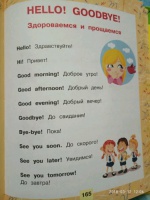 HELLO! GOODBYE!
Здороваемся и прощаемся
Hello! Здравствуйте!
Hi! Привет!
Good morning! Доброе утро!
Good afternoon! Добрый день!
Good evening! Добрый вечер!
Goodbye! До свидания!
Bye-bye! Пока!
See you soon. До скорого!
See you later! Увидимся!
See you tomorrow!
До завтра!
105